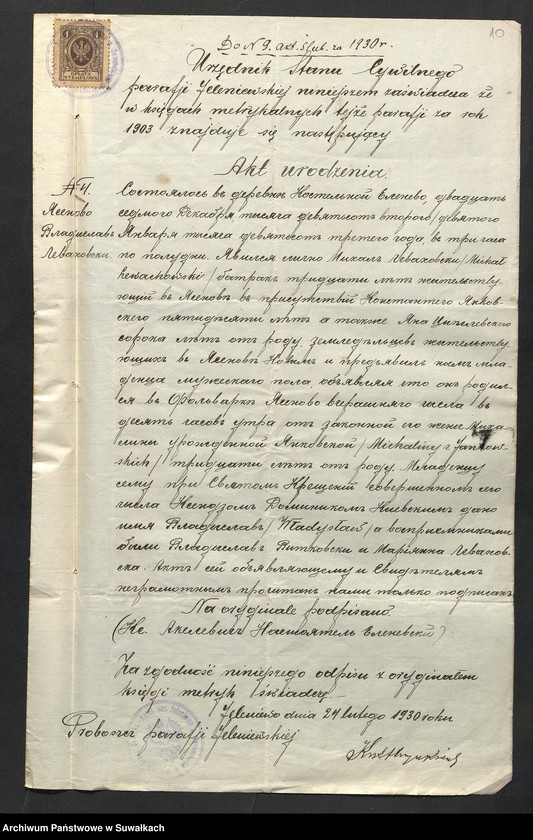 10
Do N 9. akt. ślub. za 1930 r.
Urzędnik Stanu Cywilnego
parafji Jeleniewskiej niniejszem zaświadcza że
w księgach metrykalnych tejże parafji za rok
1903 znajduje się następujący
Akt urodzenia.
Ясеново
Владиславъ
Леваховски.
Состоялось въ деревнѣ Костельной Еленево, двадцать
седьмого Декабря тысяча девятьсотъ второго / девятого
Января тысяча девятьсотъ третьяго года, въ три часа
по полудни. Явился лично Михалъ Леваховски / Michał
Lewachowski / батракъ тридцати лѣтъ жительству-
ющій въ Ясеновѣ въ присутствіи Константего Янков-
скего пятидесяти лѣтъ а также Яна
сорока лѣтъ отъ роду, земледѣльцевъ жительству-
ющихъ въ Ясеновѣ и предъявилъ намъ мла-
денца мужескаго пола, объявляя что онъ родил-
ся въ Фольваркѣ Ясеново вчерашняго числа въ
десять часовъ утра отъ законной его жены Миха-
лины урожденной Янковской / Michaliny z Jankow-
skich / тридцати лѣтъ отъ роду. Младенцу
сему при Святомъ Крещеніи совершенномъ сего
числа Ксендзомъ Доминикомъ дано
имя Владиславъ / Władysław / а воспріемниками
были Владиславъ Витковски и Марянна Левахов-
ска. Актъ сей объявляющему и Свидѣтелямъ
неграмотнымъ прочитанъ нами только подписанъ
Na oryginale podpisano:
(Кс. Акелевичъ Настоятель Еленевскій)
Za zgodność niniejszego odpisu z oryginałem
księgi metryk świadczę
Jeleniewo dnia 24 lutego 1930 roku
Proboszcz parafji Jeleniewskiej
Archiwum Państwowe w Suwałkach